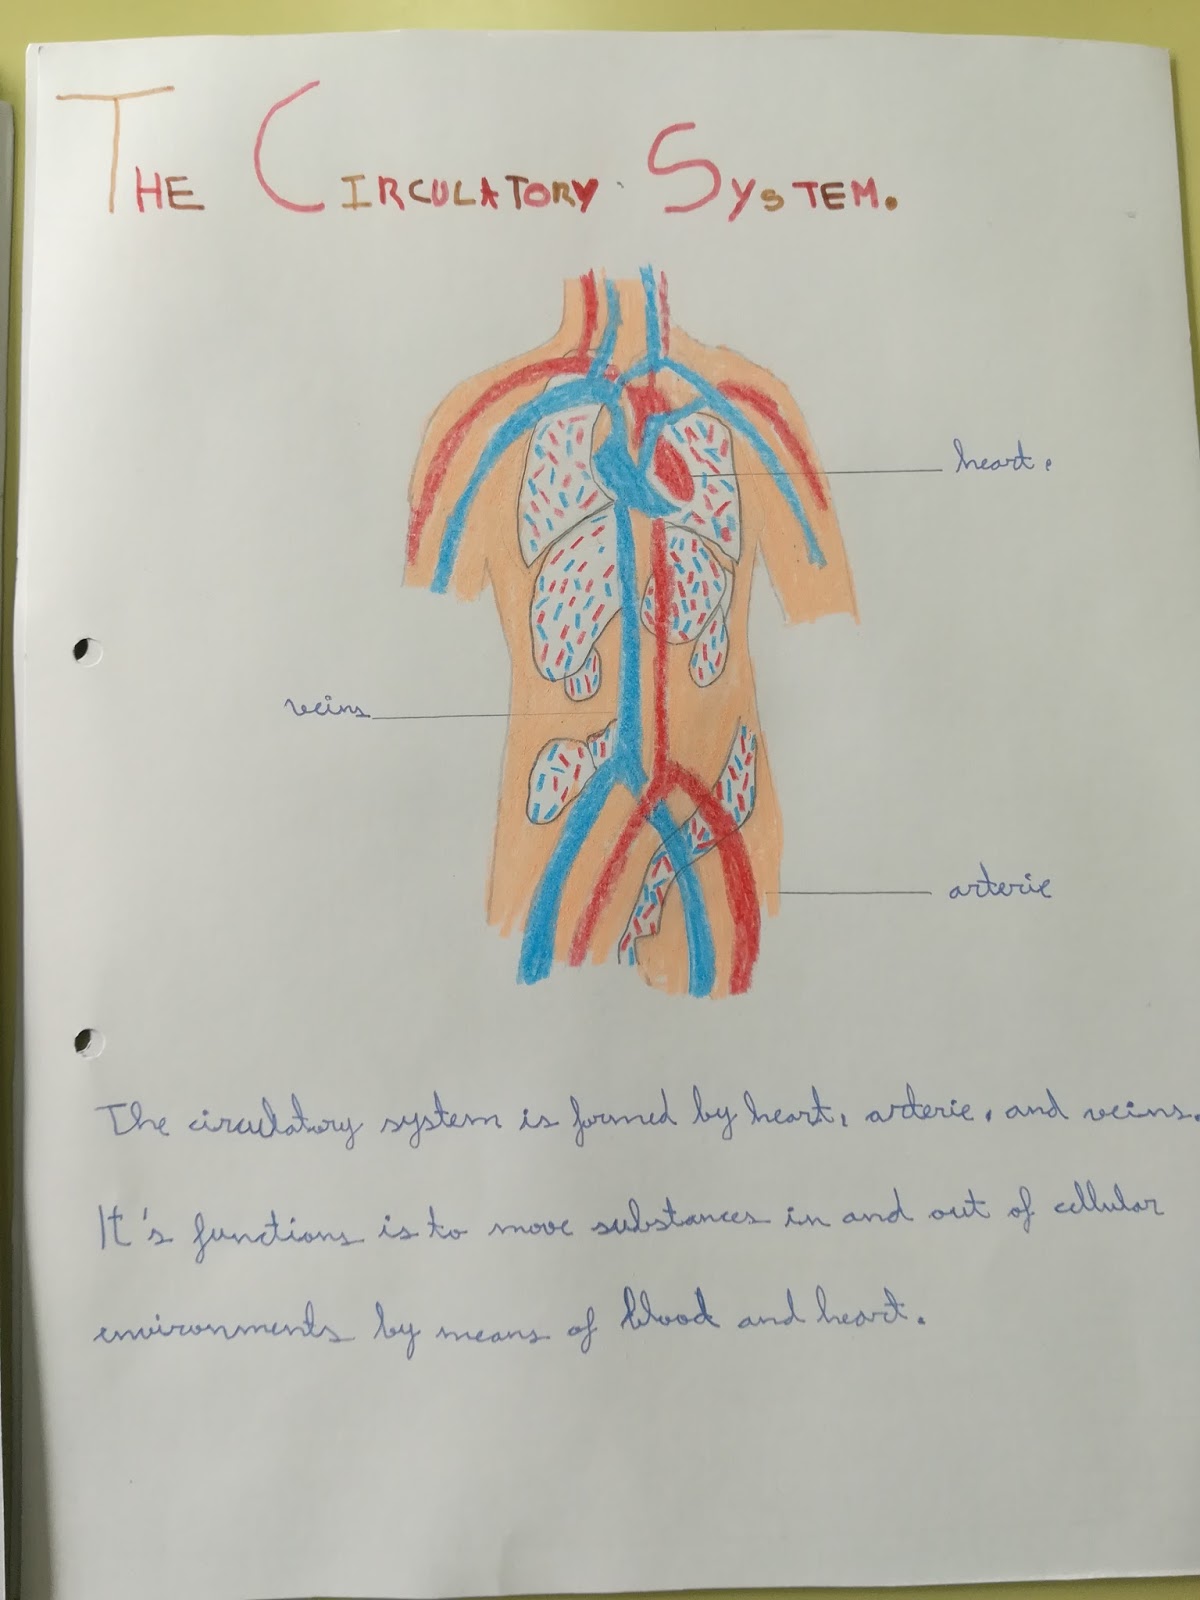 THE CIRCULATORY SYSTEM.
heart.
veins
arterie
The circulatory system is formed by heart, arterie, and veins.
It's functions is to move substances in and out of cellular
environments by means of blood and heart.